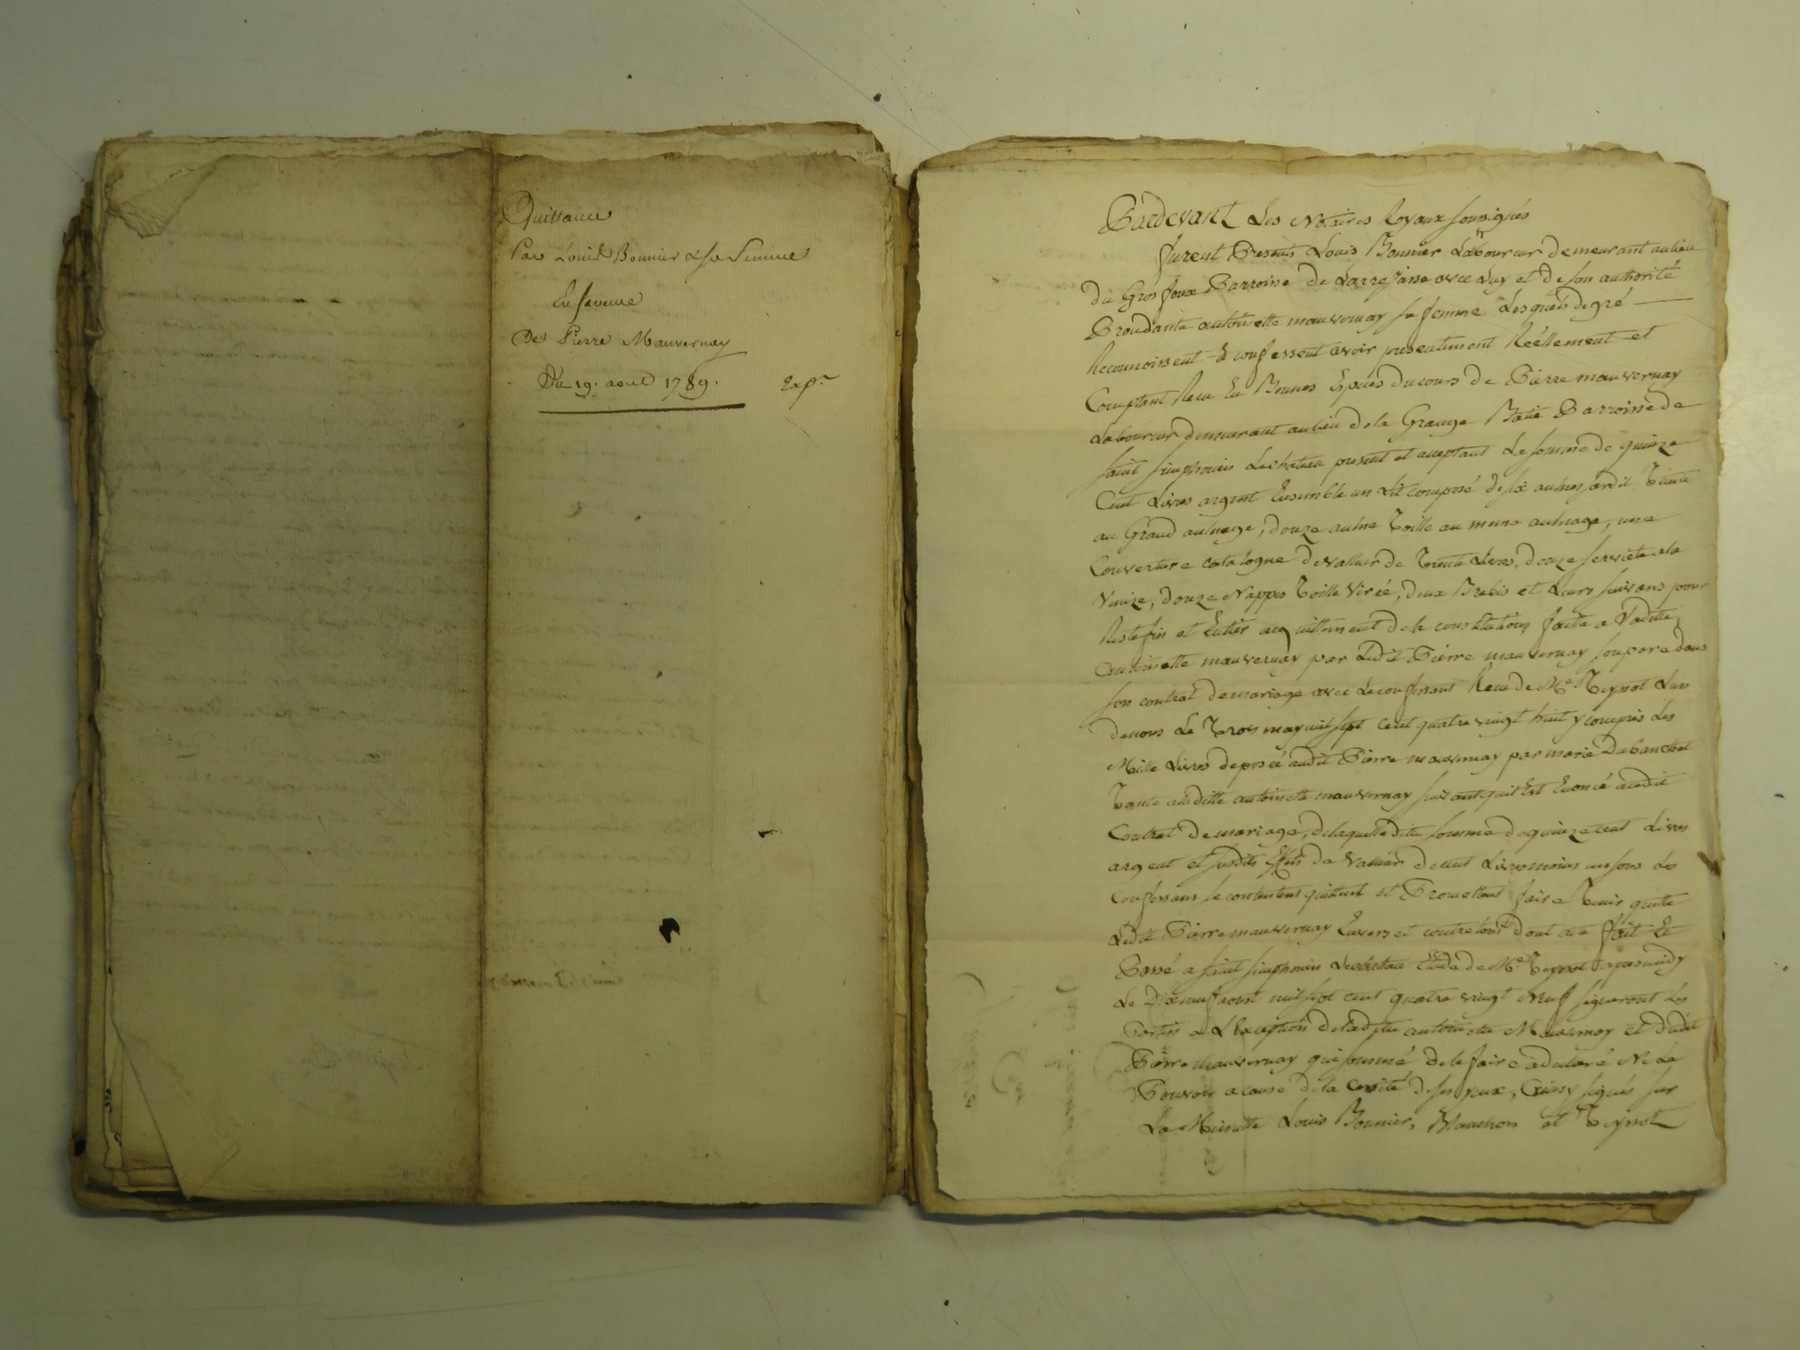 Quittance
Par Louis Bonnier & sa femme
En faveur
De Pierre Mauvernay
Du 19. avril 1789. Exp.on
Pardevant Les Notaires Royaux soussignés
furent Presents Louis Bonnier Laboureur demeurant au lieu
du Gros foux Parroisse de Larrejasse avec Luy et de son authorité
Procedante antoinette mauvernay sa femme Lesquels de gré
Reconnoissent & confessent avoir presentement Réellement et
Comptant Recu En Bonnes Espéces du cours de Pierre mauvernay
Laboureur demeurant au lieu de la Grange Batie Parroisse de
saint simphorien Lechateau present et acceptant La somme de quinze
Cent Livres argent Ensemble un Lit composé de six aulnes
au Grand aulnage, douze aulne Toille au meme aulnage, une
Couverture catalogne de valleur de Trente Livres, douze serviete a la
Venize, douze Nappes Toille Virée, deux Brebis et Leurs suivans pour
Reste fin et Entier acquittement de la constitution faitte a Laditte
antoinette mauvernay par Ledit Pierre mauvernay son pere dans
son contrat de mariage avec Le confessant Recu de Me. Teynot L'un
de nous Le Trois may mil sept cent quatre vingt huit y compris Les
Mille Livres deposé audit Pierre mauvernay par marie Dubanchet
Tante a laditte antoinette mauvernay suivant quil Est Enoncé audit
Contrat de mariage, de laquelle ditte somme de quinze cent Livres
argent et susdits Effets de Valleur de cent Livres moins un sous Les
Confessans se contentent quittent et Promettent faire Tenir quitte
Ledit Pierre mauvernay Envers et contre tous dont acte fait Et
Passé a saint simphorien Lechateau Etude de Me. Teynot apres midy
Le Dix neuf avril mil sept cent quatre vingt Neuf signeront Les
Parties a L'Exception de laditte antoinette Mauvernay et dudit
Pierre mauvernay qui sommé de le faire a declaré Ne Le
Pouvoir a cause de la cecité de ses yeux, Ainsy signés sur
La Minutte Louis Bonnier, Blanchon et Teynot